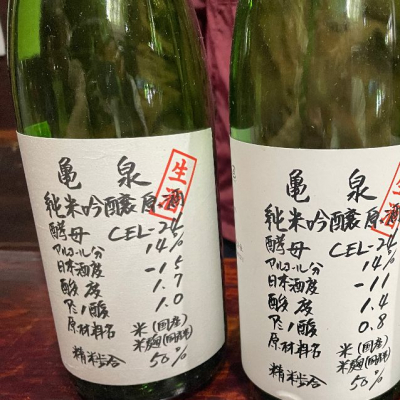 亀泉
生酒
純米吟醸原酒
酵母 CEL-24
アルコール分 14%
日本酒度 -15
酸度 1.7
アミノ酸 1.0
原材料名 米(国産)
米麹(国産米)
精米歩合 50%
亀泉
生酒
純米吟醸原酒
酵母 CEL-24
アルコール分 14%
日本酒度 -11
酸度 1.4
アミノ酸 0.8
原材料名 米(国産)
米麹(国産米)
精米歩合 50%